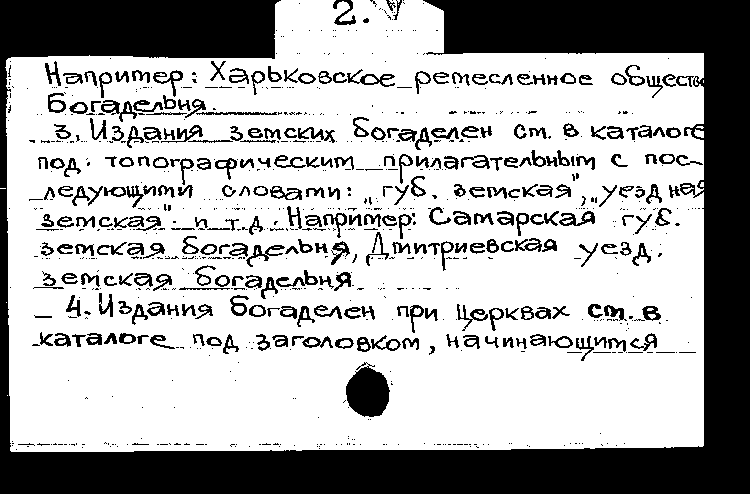 2.
Например: Харьковское ремесленное общество
Богадельня.
3. Издания земских богаделен см. в каталоге
под. топографическим прилагательным с пос-
ледующими словами: „губ. земская", „уездная
земская" и т.д. Например: Самарская губ.
земская богадельня, Дмитриевская уезд.
земская богадельня
4. Издания богаделен при церквах см. в
каталоге под заголовком, начинающимся